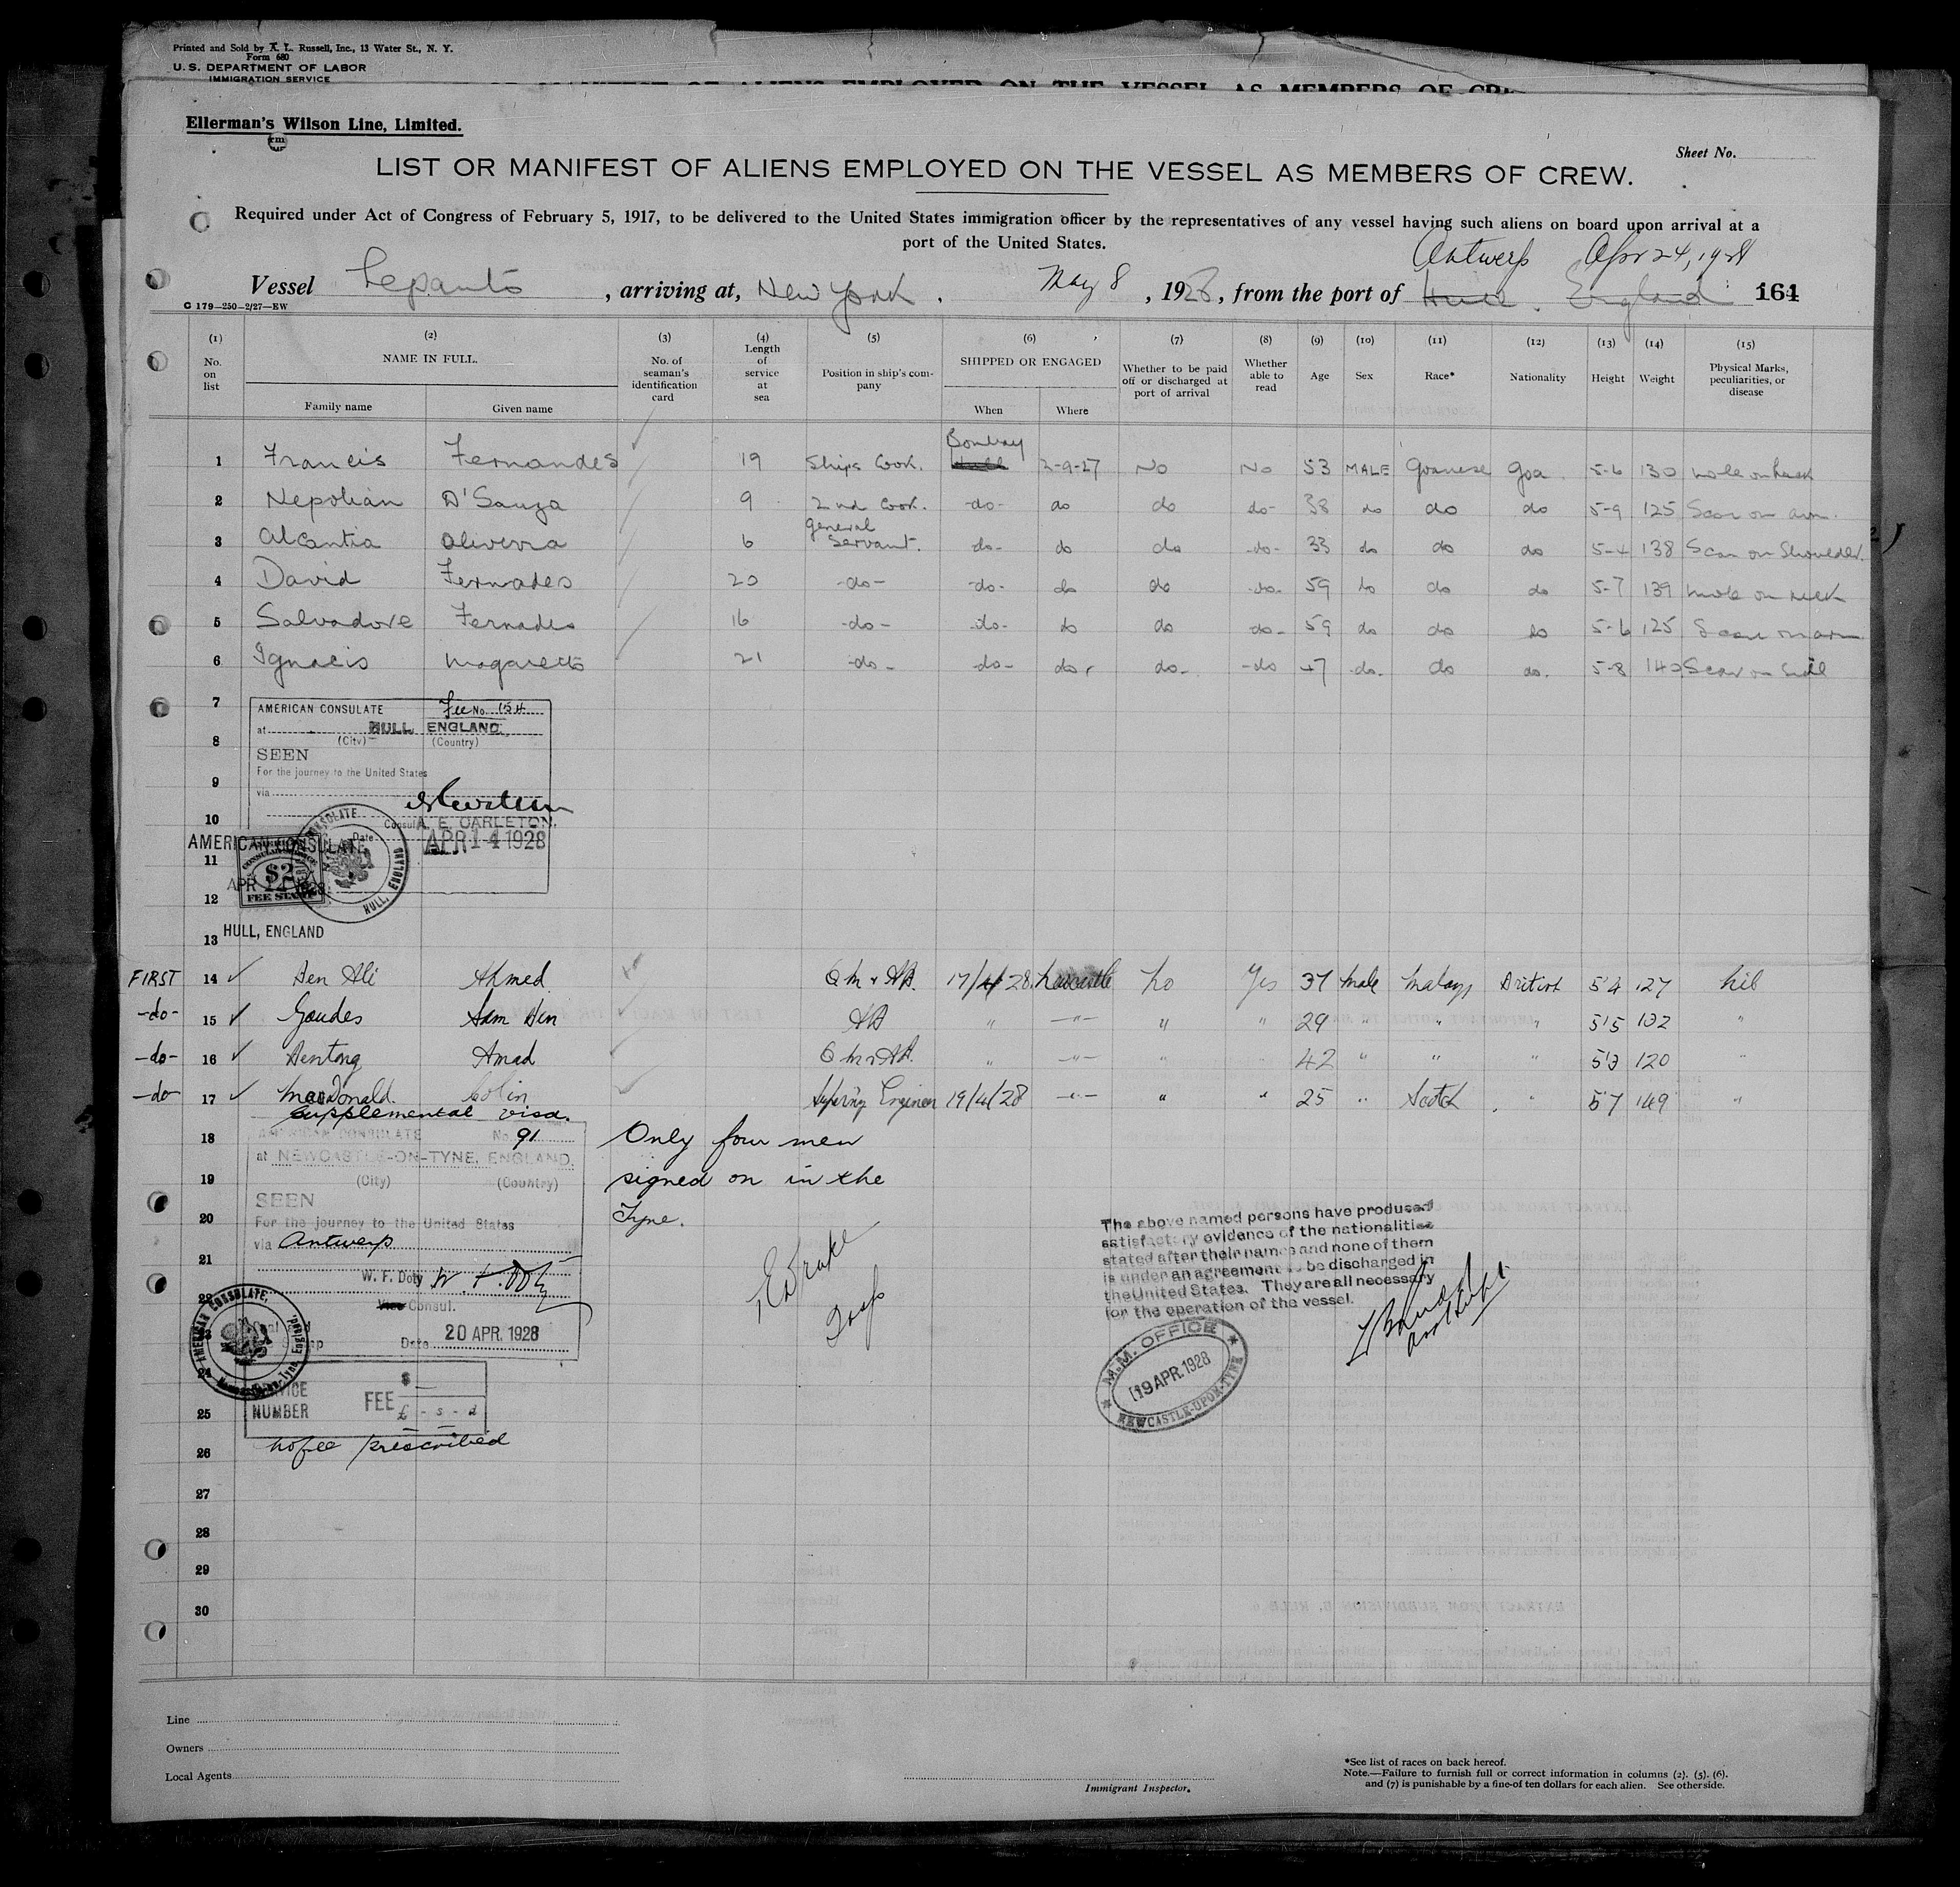 Printed and Sold by A. L. Russell, Inc., 13 Water St., N. Y.
Form 680
U. S. DEPARTMENT OF LABOR
IMMIGRATION SERVICE
OR MANIFEST OF ALIENS EMPLOYED ON THE VESSEL AS MEMBERS OF CR
Ellerman's Wilson Line, Limited.
Sheet No.
LIST OR MANIFEST OF ALIENS EMPLOYED ON THE VESSEL AS MEMBERS OF CREW.
Required under Act of Congress of February 5, 1917, to be delivered to the United States immigration officer by the representatives of any vessel having such aliens on board upon arrival at a
port of the United States.
Antwerp Apr 24, 1928
Vessel Lepanto, arriving at, New York. May 8, 1928, from the port of Hull. England 164
C 179—250—2/27—EW
(1) (2) (3) (4) (5) (6) (7) (8) (9) (10) (11) (12) (13) (14) (15)
No. on list NAME IN FULL. No. of seaman's identification card Length of service at sea Position in ship's company SHIPPED OR ENGAGED Whether to be paid off or discharged at port of arrival Whether able to read Age Sex Race* Nationality Height Weight Physical Marks, peculiarities, or disease
Family name Given name When Where
Bombay
1 Francis Fernandes 19 Ships Cook. Hull 2-9-27 No No 53 MALE Goanese Goa 5-6 130 mole on
2 Nepolian D'Sauza 9 2nd Cook. -do- do do -do- 38 do do do 5-9 125 Scar on arm.
3 Alcantia Oliveira 6 General Servant. -do- do do -do- 33 do do do 5-4 138 Scar on Shoulder.
4 David Fernades 20 -do- -do- do do -do- 59 do do do 5-7 139 mole on neck
5 Salvadore Fernades 16 -do- -do- do do do- 59 do do do 5-6 125 Scar on arm
6 Ignacis Magaretto 21 -do- -do- do. do- -do 47 do. do do. 5-8 140 Scar on
7
AMERICAN CONSULATE Fee No. 154
at HULL, ENGLAND.
8
(City) (Country)
SEEN
For the journey to the United States
9
via
10
Consul A. E. CARLETON.
Date APR 14 1928
AMERICAN CONSULATE
11
$2
APR 14 1928
FEE STAMP
HULL, ENGLAND
12
13 HULL, ENGLAND
FIRST 14 Ben Ali Ahmed. Q M & AB. 17/4/28 Newcastle No Yes 37 Male Malay British 5'4 127 Nil
-do- 15 Goudes Sam Din AB " —"— " " 29 " " " 5'5 132 "
-do- 16 Bentong Amad Q M & AB. " —"— " " 42 " " " 5'3 120 "
-do- 17 MacDonald. Colin Engineer 19/4/28 —"— " " 25 " Scotch " 5'7 149 "
Supplemental visa.
18
AMERICAN CONSULATE No. 91
at NEWCASTLE-ON-TYNE, ENGLAND.
(City) (Country)
Only four men
signed on in the
Tyne.
19
SEEN
20
For the journey to the United States
via Antwerp
21
W. F. Doty
Vice Consul.
22
23
Date 20 APR. 1928
24
AMERICAN CONSULATE.
SERVICE NUMBER FEE $ — £ - s - d
25
No fee prescribed
26
The above named persons have produced
satisfactory evidence of the nationalities
stated after their names and none of them
is under an agreement to be discharged in
the United States. They are all necessary
for the operation of the vessel.
M. M. OFFICE
19 APR. 1928
NEWCASTLE-UPON-TYNE
27
28
29
30
Line
Owners
Local Agents
Immigrant Inspector.
*See list of races on back hereof.
Note.—Failure to furnish full or correct information in columns (2). (5). (6).
and (7) is punishable by a fine of ten dollars for each alien. See other side.